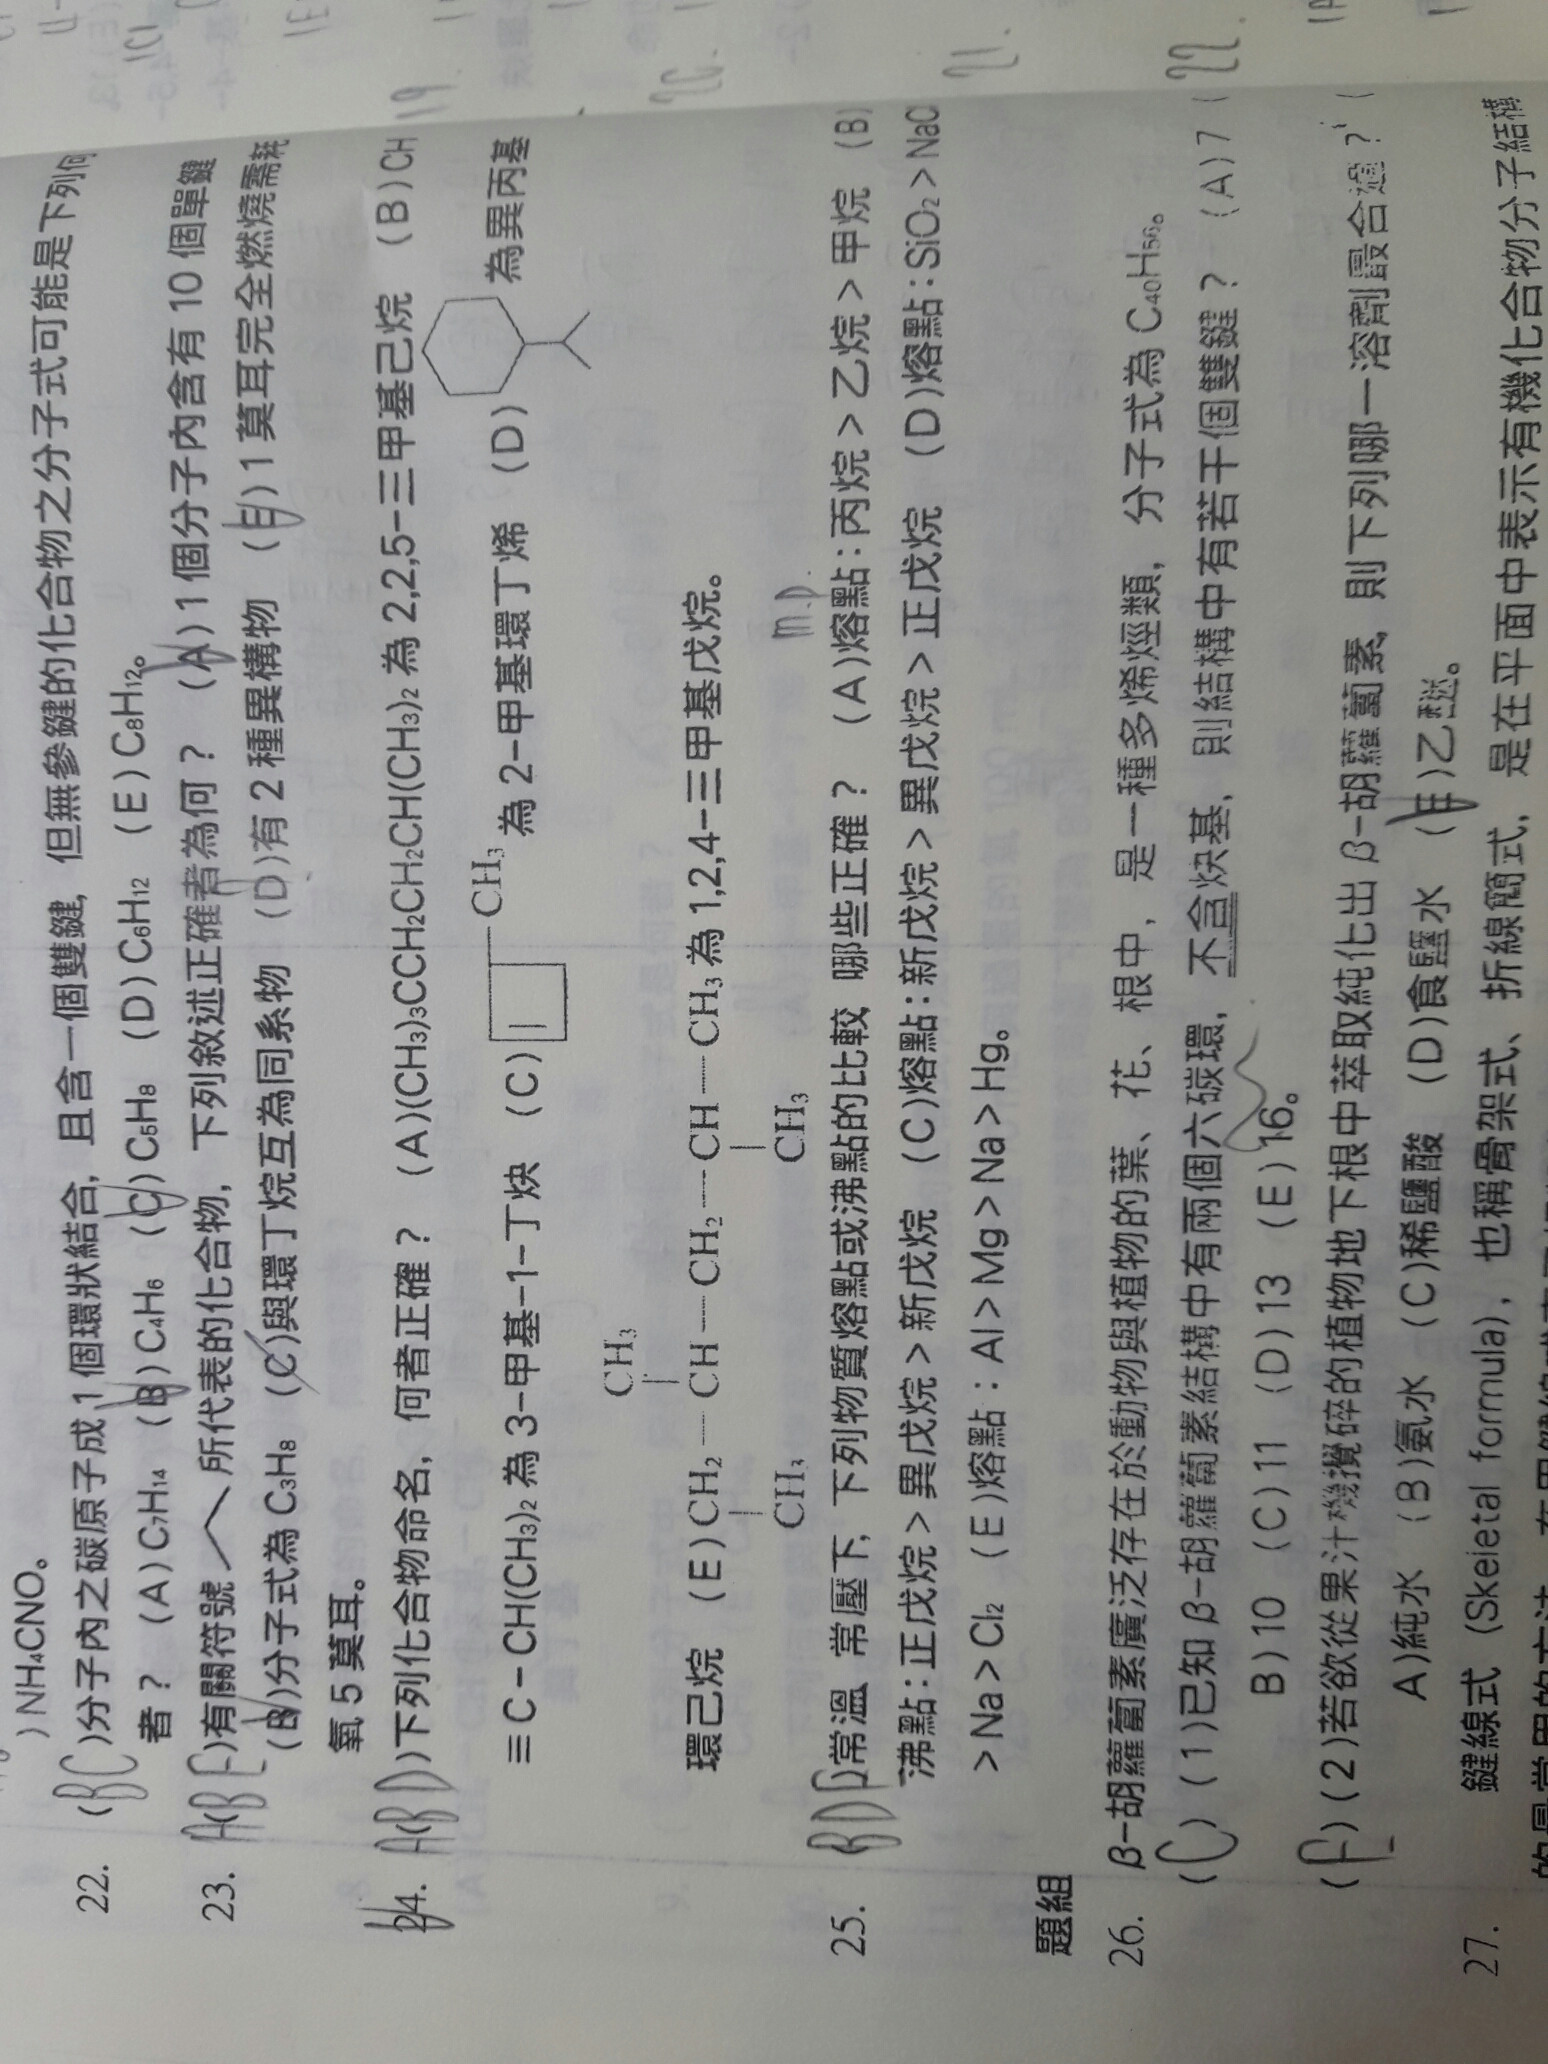 )NH₄CNO。
22. (BC)分子內之碳原子成1個環狀結合，且含一個雙鍵，但無參鍵的化合物之分子式可能是下列何
者？ (A)C₇H₁₄ (B)C₄H₆ (C)C₅H₈ (D)C₆H₁₂ (E)C₈H₁₂。
23. (ABE)有關符號 所代表的化合物，下列敘述正確者為何？ (A)1個分子內含有10個單鍵
(B)分子式為C₃H₈ (C)與環丁烷互為同系物 (D)有2種異構物 (E)1莫耳完全燃燒需耗
氧5莫耳。
24. (ABD)下列化合物命名，何者正確？ (A)(CH₃)₃CCH₂CH₂CH(CH₃)₂為2,2,5-三甲基己烷 (B)CH
≡C-CH(CH₃)₂為3-甲基-1-丁炔 (C) CH₃ 為2-甲基環丁烯 (D) 為異丙基
CH₃
環己烷 (E)CH₂—CH—CH₂—CH—CH₃為1,2,4-三甲基戊烷。
CH₃ CH₃
m.p.
25. 常溫、常壓下，下列物質熔點或沸點的比較，哪些正確？ (A)熔點：丙烷>乙烷>甲烷 (B)
沸點：正戊烷>異戊烷>新戊烷 (C)熔點：新戊烷>異戊烷>正戊烷 (D)熔點：SiO₂>NaC
>Na>Cl₂ (E)熔點：Al>Mg>Na>Hg。
題組
26. β-胡蘿蔔素廣泛存在於動物與植物的葉、花、根中，是一種多烯烴類，分子式為C₄₀H₅₆。
(C)(1)已知β-胡蘿蔔素結構中有兩個六碳環，不含炔基，則結構中有若干個雙鍵？ (A)7 (
B)10 (C)11 (D)13 (E)16。
(E)(2)若欲從果汁機攪碎的植物地下根中萃取純化出β-胡蘿蔔素，則下列哪一溶劑最合適？ (
A)純水 (B)氨水 (C)稀鹽酸 (D)食鹽水 (E)乙醚。
27. 鍵線式 (Skeletal formula)，也稱骨架式、折線簡式，是在平面中表示有機化合物分子結構
19
20.
21.
22.